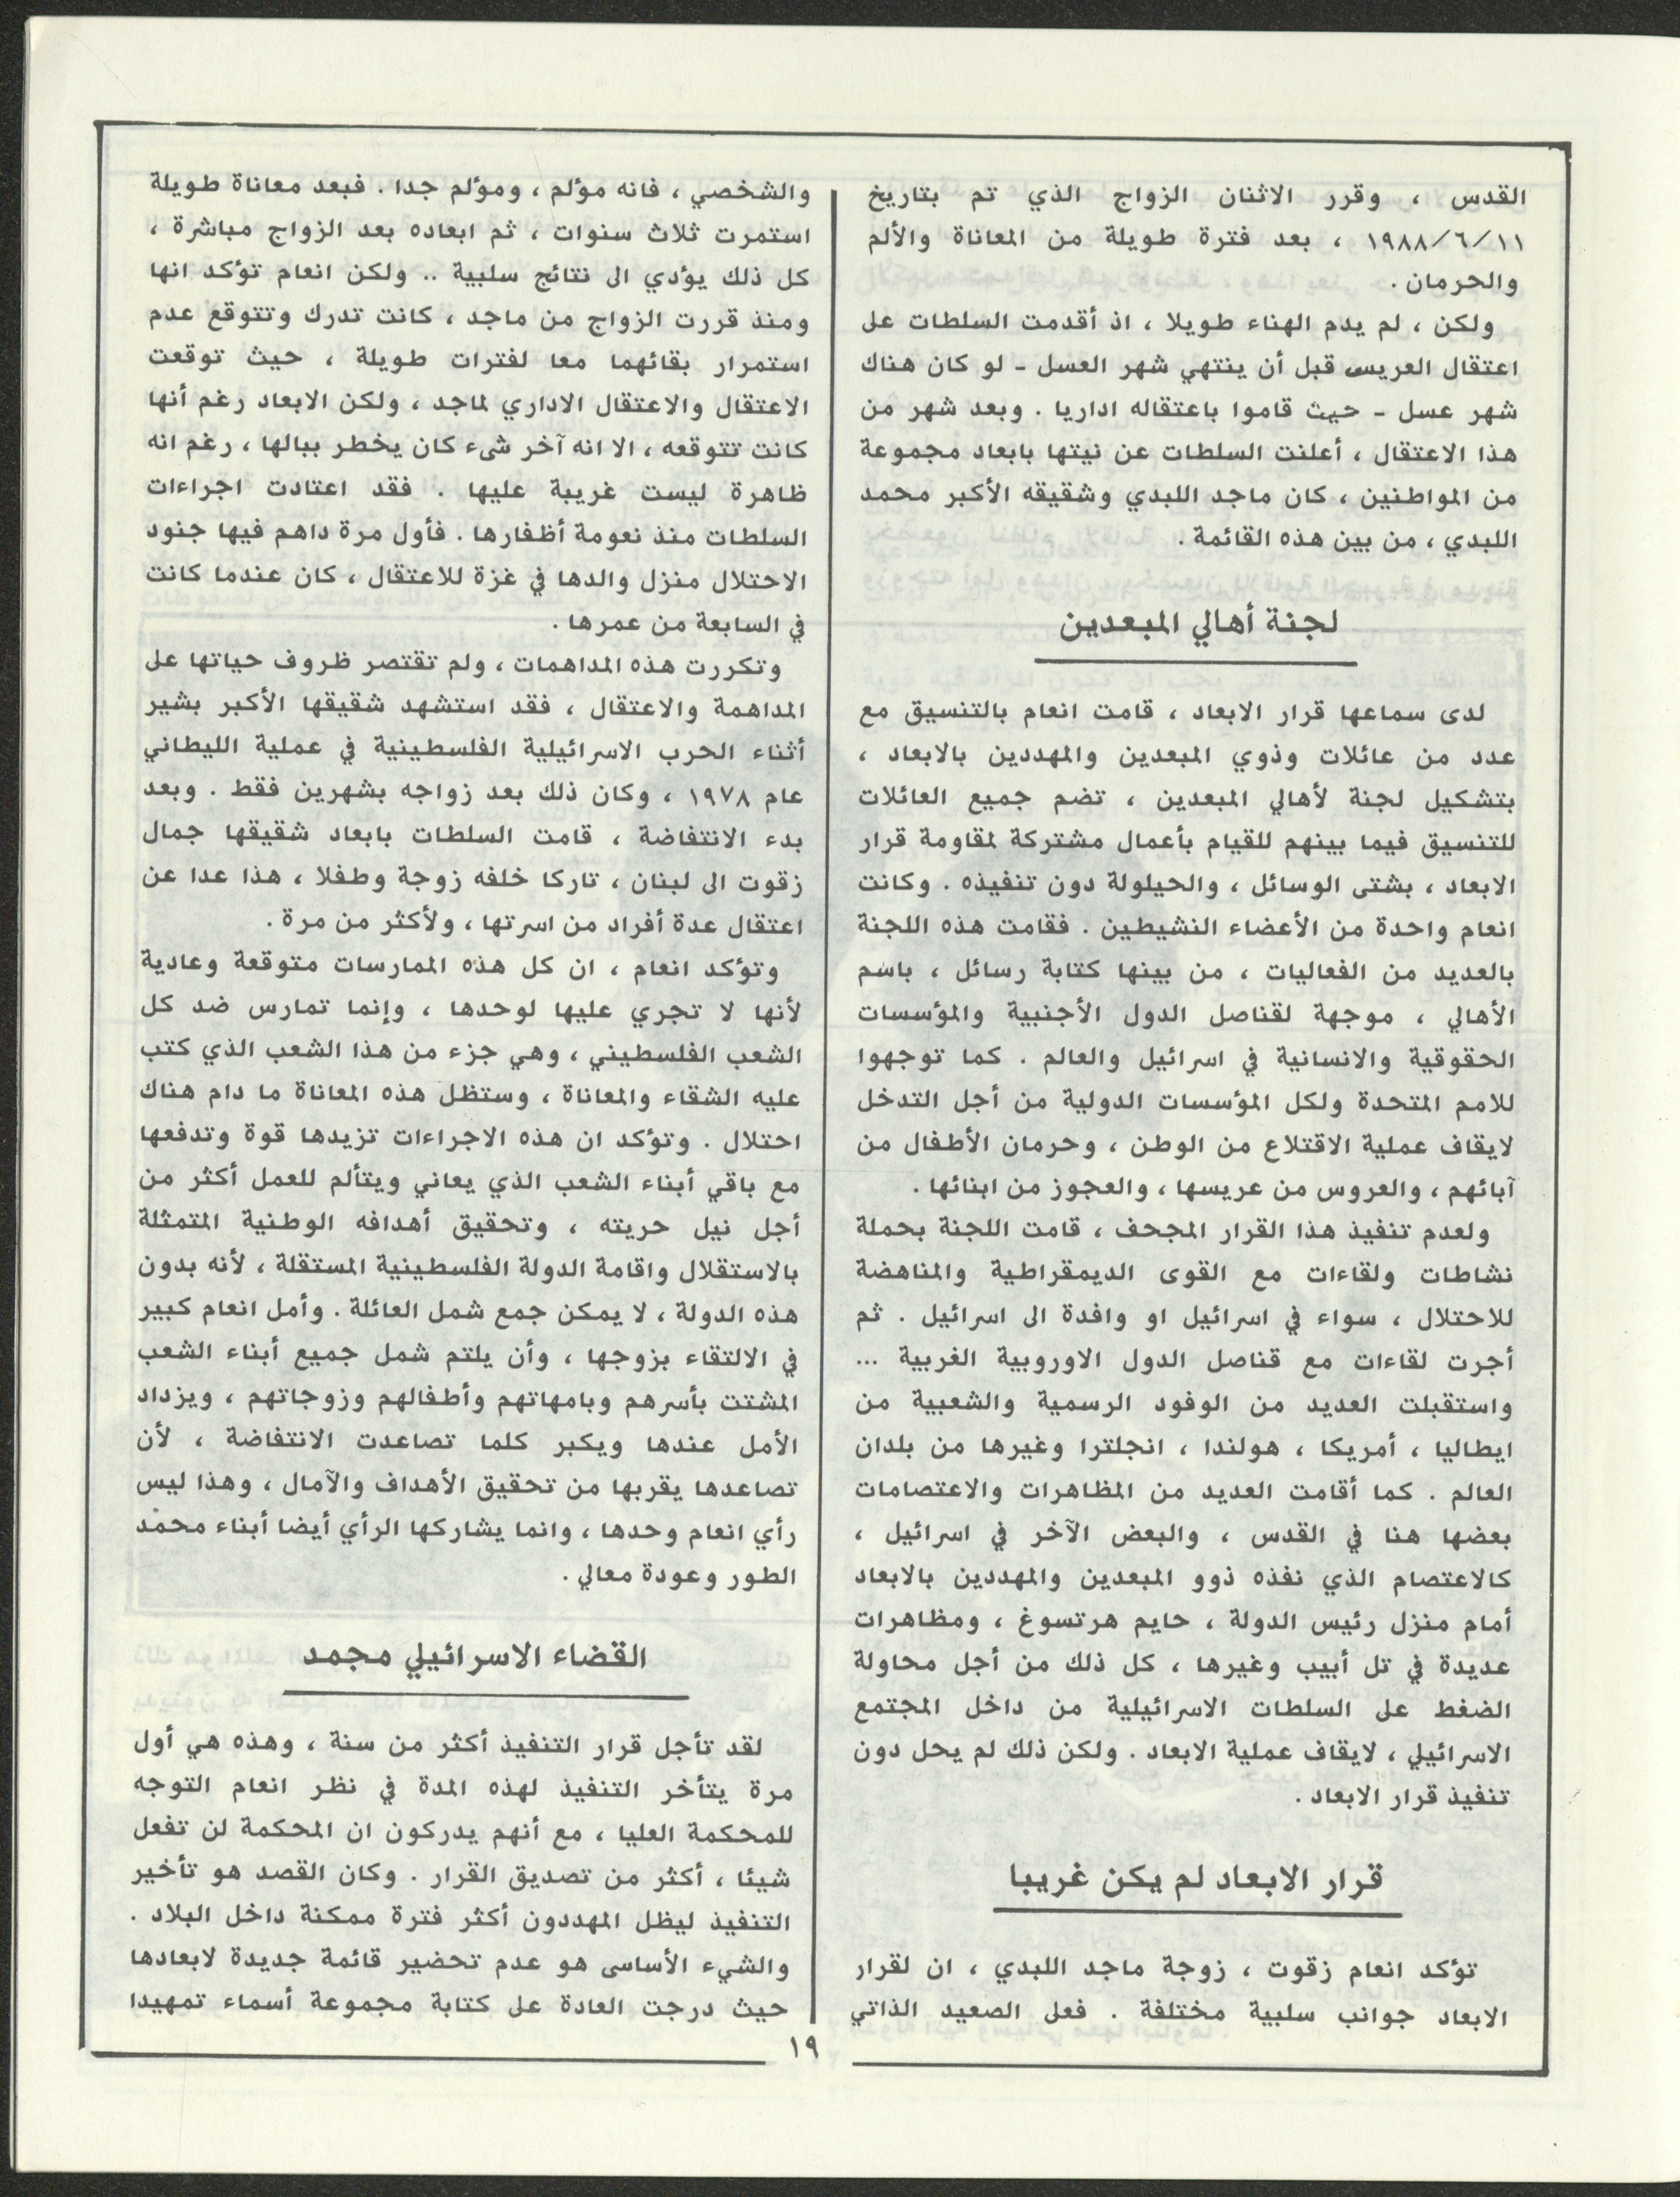 القدس ، وقرر الاثنان الزواج الذي تم بتاريخ
١٩٨٨/٦/١١ ، بعد فترة طويلة من المعاناة والألم
والحرمان .
ولكن ، لم يدم الهناء طويلا ، اذ أقدمت السلطات على
اعتقال العريس قبل أن ينتهي شهر العسل - لو كان هناك
شهر عسل - حيث قاموا باعتقاله اداريا . وبعد شهر من
هذا الاعتقال ، أعلنت السلطات عن نيتها بابعاد مجموعة
من المواطنين ، كان ماجد اللبدي وشقيقه الأكبر محمد
اللبدي ، من بين هذه القائمة .
لجنة أهالي المبعدين
لدى سماعها قرار الابعاد ، قامت انعام بالتنسيق مع
عدد من عائلات وذوي المبعدين والمهددين بالابعاد ،
بتشكيل لجنة لأهالي المبعدين ، تضم جميع العائلات
للتنسيق فيما بينهم للقيام بأعمال مشتركة لمقاومة قرار
الابعاد ، بشتى الوسائل ، والحيلولة دون تنفيذه . وكانت
انعام واحدة من الأعضاء النشيطين . فقامت هذه اللجنة
بالعديد من الفعاليات ، من بينها كتابة رسائل ، باسم
الأهالي ، موجهة لقناصل الدول الأجنبية والمؤسسات
الحقوقية والانسانية في اسرائيل والعالم . كما توجهوا
للامم المتحدة ولكل المؤسسات الدولية من أجل التدخل
لايقاف عملية الاقتلاع من الوطن ، وحرمان الأطفال من
آبائهم ، والعروس من عريسها ، والعجوز من ابنائها .
ولعدم تنفيذ هذا القرار المجحف ، قامت اللجنة بحملة
نشاطات ولقاءات مع القوى الديمقراطية والمناهضة
للاحتلال ، سواء في اسرائيل او وافدة الى اسرائيل . ثم
أجرت لقاءات مع قناصل الدول الاوروبية الغربية ...
واستقبلت العديد من الوفود الرسمية والشعبية من
ايطاليا ، أمريكا ، هولندا ، انجلترا وغيرها من بلدان
العالم . كما أقامت العديد من المظاهرات والاعتصامات
بعضها هنا في القدس ، والبعض الآخر في اسرائيل ،
كالاعتصام الذي نفذه ذوو المبعدين والمهددين بالابعاد
أمام منزل رئيس الدولة ، حايم هرتسوغ ، ومظاهرات
عديدة في تل أبيب وغيرها ، كل ذلك من أجل محاولة
الضغط على السلطات الاسرائيلية من داخل المجتمع
الاسرائيلي ، لايقاف عملية الابعاد . ولكن ذلك لم يحل دون
تنفيذ قرار الابعاد .
قرار الابعاد لم يكن غريبا
تؤكد انعام زقوت ، زوجة ماجد اللبدي ، ان لقرار
الابعاد جوانب سلبية مختلفة . فعلى الصعيد الذاتي
والشخصي ، فانه مؤلم ، ومؤلم جدا . فبعد معاناة طويلة
استمرت ثلاث سنوات ، ثم ابعاده بعد الزواج مباشرة ،
كل ذلك يؤدي الى نتائج سلبية .. ولكن انعام تؤكد انها
ومنذ قررت الزواج من ماجد ، كانت تدرك وتتوقع عدم
استمرار بقائهما معا لفترات طويلة ، حيث توقعت
الاعتقال والاعتقال الاداري لماجد ، ولكن الابعاد رغم أنها
كانت تتوقعه ، الا انه آخر شىء كان يخطر ببالها ، رغم انه
ظاهرة ليست غريبة عليها . فقد اعتادت اجراءات
السلطات منذ نعومة أظفارها . فأول مرة داهم فيها جنود
الاحتلال منزل والدها في غزة للاعتقال ، كان عندما كانت
في السابعة من عمرها .
وتكررت هذه المداهمات ، ولم تقتصر ظروف حياتها على
المداهمة والاعتقال ، فقد استشهد شقيقها الأكبر بشير
أثناء الحرب الاسرائيلية الفلسطينية في عملية الليطاني
عام ١٩٧٨ ، وكان ذلك بعد زواجه بشهرين فقط . وبعد
بدء الانتفاضة ، قامت السلطات بابعاد شقيقها جمال
زقوت الى لبنان ، تاركا خلفه زوجة وطفلا ، هذا عدا عن
اعتقال عدة أفراد من اسرتها ، ولأكثر من مرة .
وتؤكد انعام ، ان كل هذه الممارسات متوقعة وعادية
لأنها لا تجري عليها لوحدها ، وإنما تمارس ضد كل
الشعب الفلسطيني ، وهي جزء من هذا الشعب الذي كتب
عليه الشقاء والمعاناة ، وستظل هذه المعاناة ما دام هناك
احتلال . وتؤكد ان هذه الاجراءات تزيدها قوة وتدفعها
مع باقي أبناء الشعب الذي يعاني ويتألم للعمل أكثر من
أجل نيل حريته ، وتحقيق أهدافه الوطنية المتمثلة
بالاستقلال واقامة الدولة الفلسطينية المستقلة ، لأنه بدون
هذه الدولة ، لا يمكن جمع شمل العائلة . وأمل انعام كبير
في الالتقاء بزوجها ، وأن يلتم شمل جميع أبناء الشعب
المشتت بأسرهم وبامهاتهم وأطفالهم وزوجاتهم ، ويزداد
الأمل عندها ويكبر كلما تصاعدت الانتفاضة ، لأن
تصاعدها يقربها من تحقيق الأهداف والآمال ، وهذا ليس
رأي انعام وحدها ، وانما يشاركها الرأي أيضا أبناء محمد
الطور وعودة معالي .
القضاء الاسرائيلي مجمد
لقد تأجل قرار التنفيذ أكثر من سنة ، وهذه هي أول
مرة يتأخر التنفيذ لهذه المدة في نظر انعام التوجه
للمحكمة العليا ، مع أنهم يدركون ان المحكمة لن تفعل
شيئا ، أكثر من تصديق القرار . وكان القصد هو تأخير
التنفيذ ليظل المهددون أكثر فترة ممكنة داخل البلاد .
والشيء الأساسى هو عدم تحضير قائمة جديدة لابعادها
حيث درجت العادة على كتابة مجموعة أسماء تمهيدا
١٩